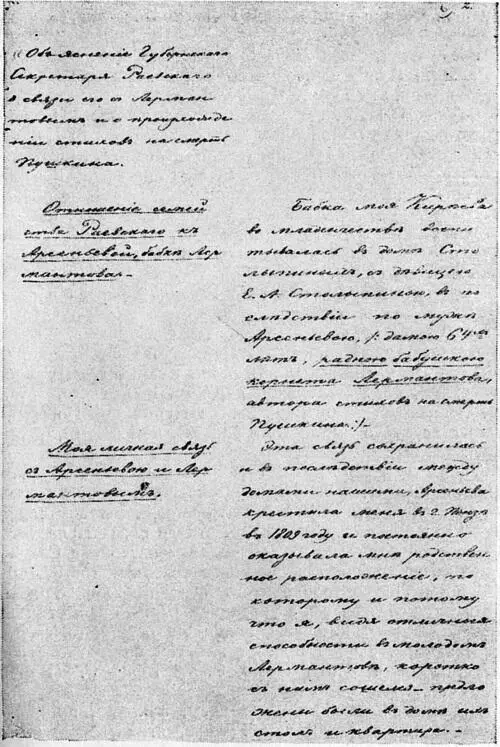 2.
„Объясненіе Губернскаго
Секретаря Раевскаго
о связи его съ Лерман
товымъ и о происхожде
ніи стиховъ на смерть
Пушкина.
Отношеніе семей
ства Раевскаго къ
Арсеньевой, бабкѣ Лер
мантова.
Бабка моя Киреева
во младенчествѣ воспи
тывалась въ домѣ Сто
лыпиныхъ, съ дѣвицею
Е. А. Столыпиною, въ по
слѣдствіи по мужѣ
Арсеньевою, /: дамою 64 хъ
лѣтъ, родною бабушкою
корнета Лермантова,
автора стиховъ на смерть
Пушкина :/-
Моя личная связь
съ Арсеньевою и Лер
мантовымъ.
Эта связь сохранилась
и въ послѣдствіи между
домами нашими, Арсеньева
крестила меня въ г. Пензѣ
въ 1809 году и постоянно
оказывала мнѣ родствен
ное расположеніе, по
которому и потому
что я, видя отличныя
способности въ молодомъ
Лермантовѣ, коротко
съ нимъ сошелся - предло
жены были въ домѣ ихъ
столъ и квартира. -